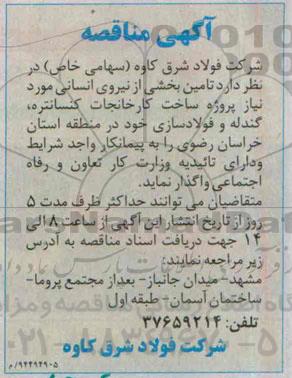 آگهی مناقصه
شرکت فولاد شرق کاوه (سهامی خاص) در
نظر دارد تامین بخشی از نیروی انسانی مورد
نیاز پروژه ساخت کارخانجات کنسانتره،
گندله و فولادسازی خود در منطقه استان
خراسان رضوی را به پیمانکار واجد شرایط
ودارای تائیدیه وزارت کار تعاون و رفاه
اجتماعی واگذار نماید.
متقاضیان می توانند حداکثر ظرف مدت ۵
روز از تاریخ انتشار این آگهی از ساعت ۸ الی
۱۴ جهت دریافت اسناد مناقصه به آدرس
زیر مراجعه نمایند:
مشهد- میدان جانباز- بعداز مجتمع پروما-
ساختمان آسمان- طبقه اول
تلفن: ۳۷۶۵۹۲۱۴
شرکت فولاد شرق کاوه
۹۴۴۹۴۹۰۵/م